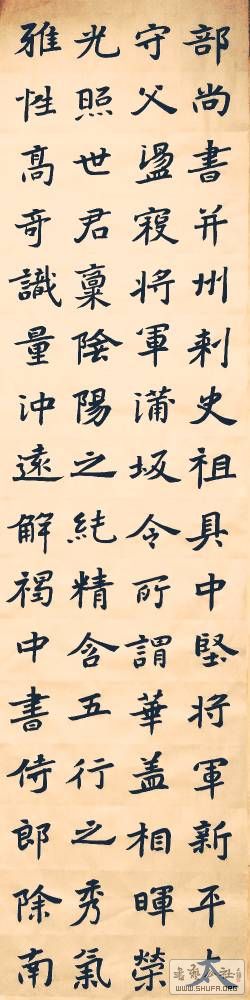 部尚書并州刺史祖具中堅將軍新平大
守父盪寇將軍蒲坂令所謂華蓋相暉榮
光照世君稟陰陽之純精含五行之秀氣
雅性高奇識量沖遠解褐中書侍郎除南
WWW.SHUFA.ORG